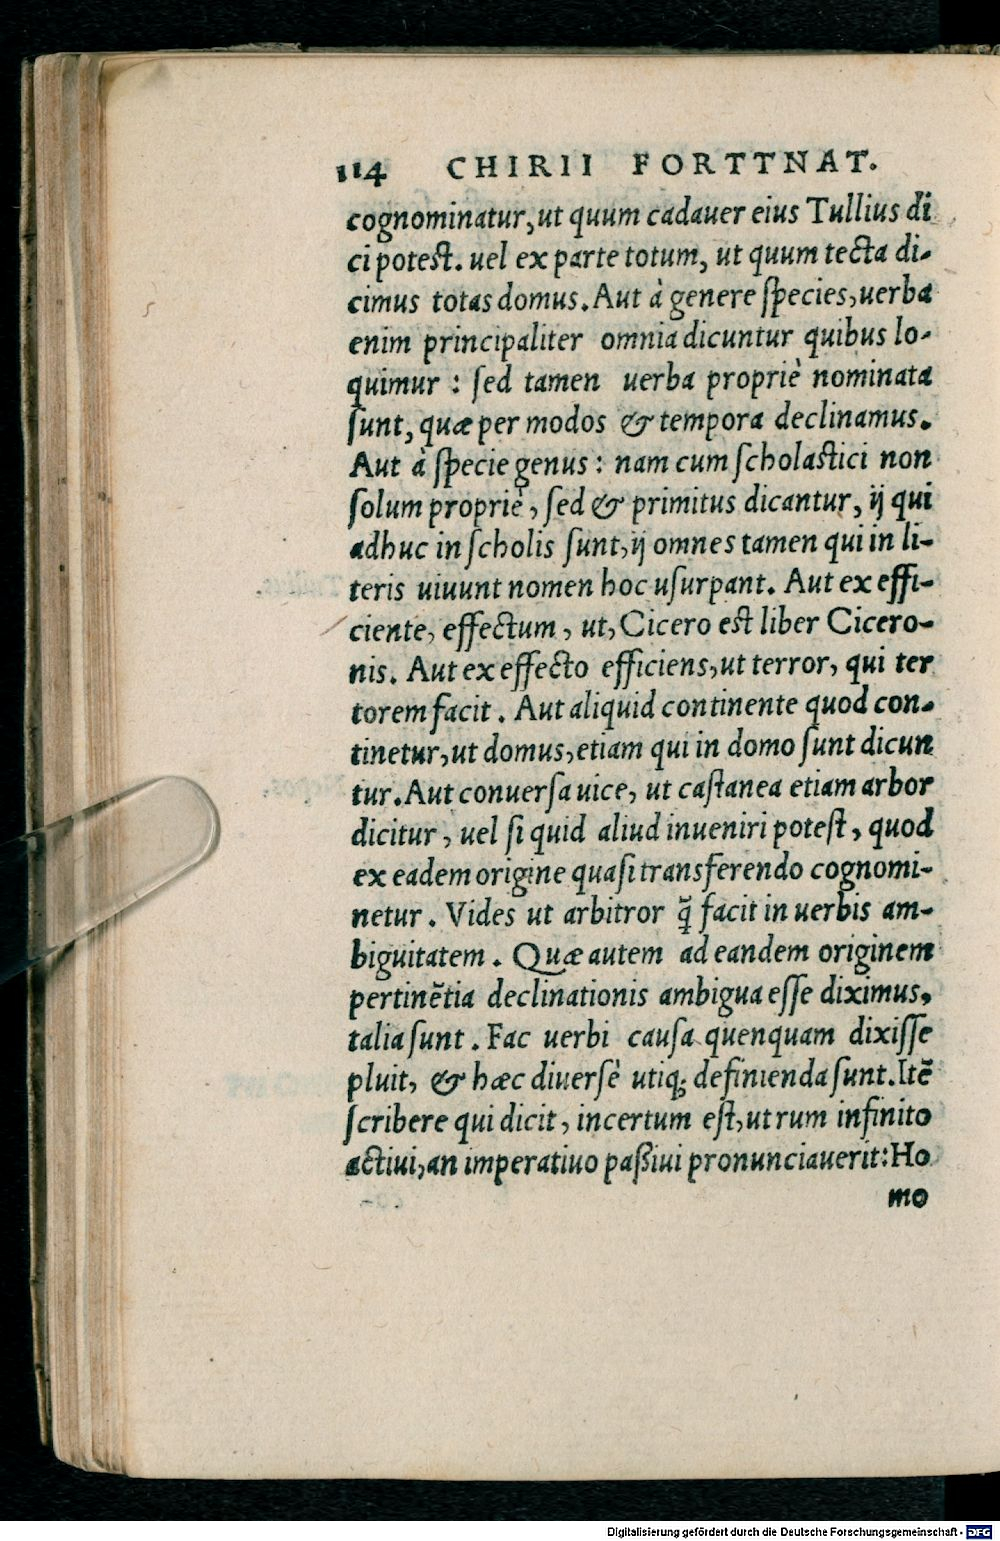 114 CHIRII FORTTNAT.
cognominatur, ut quum cadauer eius Tullius di
ci potest. uel ex parte totum, ut quum tecta di-
cimus totas domus. Aut à genere species, uerba
enim principaliter omnia dicuntur quibus lo-
quimur : sed tamen uerba propriè nominata
sunt, quæ per modos & tempora declinamus.
Aut à specie genus : nam cum scholastici non
solum propriè, sed & primitus dicantur, ij qui
adhuc in scholis sunt, ij omnes tamen qui in li-
teris uiuunt nomen hoc usurpant. Aut ex effi-
ciente, effectum, ut, Cicero est liber Cicero-
nis. Aut ex effecto efficiens, ut terror, qui ter
rorem facit. Aut aliquid continente quod con-
tinetur, ut domus, etiam qui in domo sunt dicun
tur. Aut conuersa uice, ut castanea etiam arbor
dicitur, uel si quid aliud inueniri potest, quod
ex eadem origine quasi transferendo cognomi-
netur. Vides ut arbitror q̃ facit in uerbis am-
biguitatem. Quæ autem ad eandem originem
pertinẽtia declinationis ambigua esse diximus,
talia sunt. Fac uerbi causa quenquam dixisse
pluit, & hæc diuersè utiq; definienda sunt. Itẽ
scribere qui dicit, incertum est, utrum infinito
actiui, an imperatiuo paßiui pronunciauerit: Ho
mo
Digitalisierung gefördert durch die Deutsche Forschungsgemeinschaft - DFG